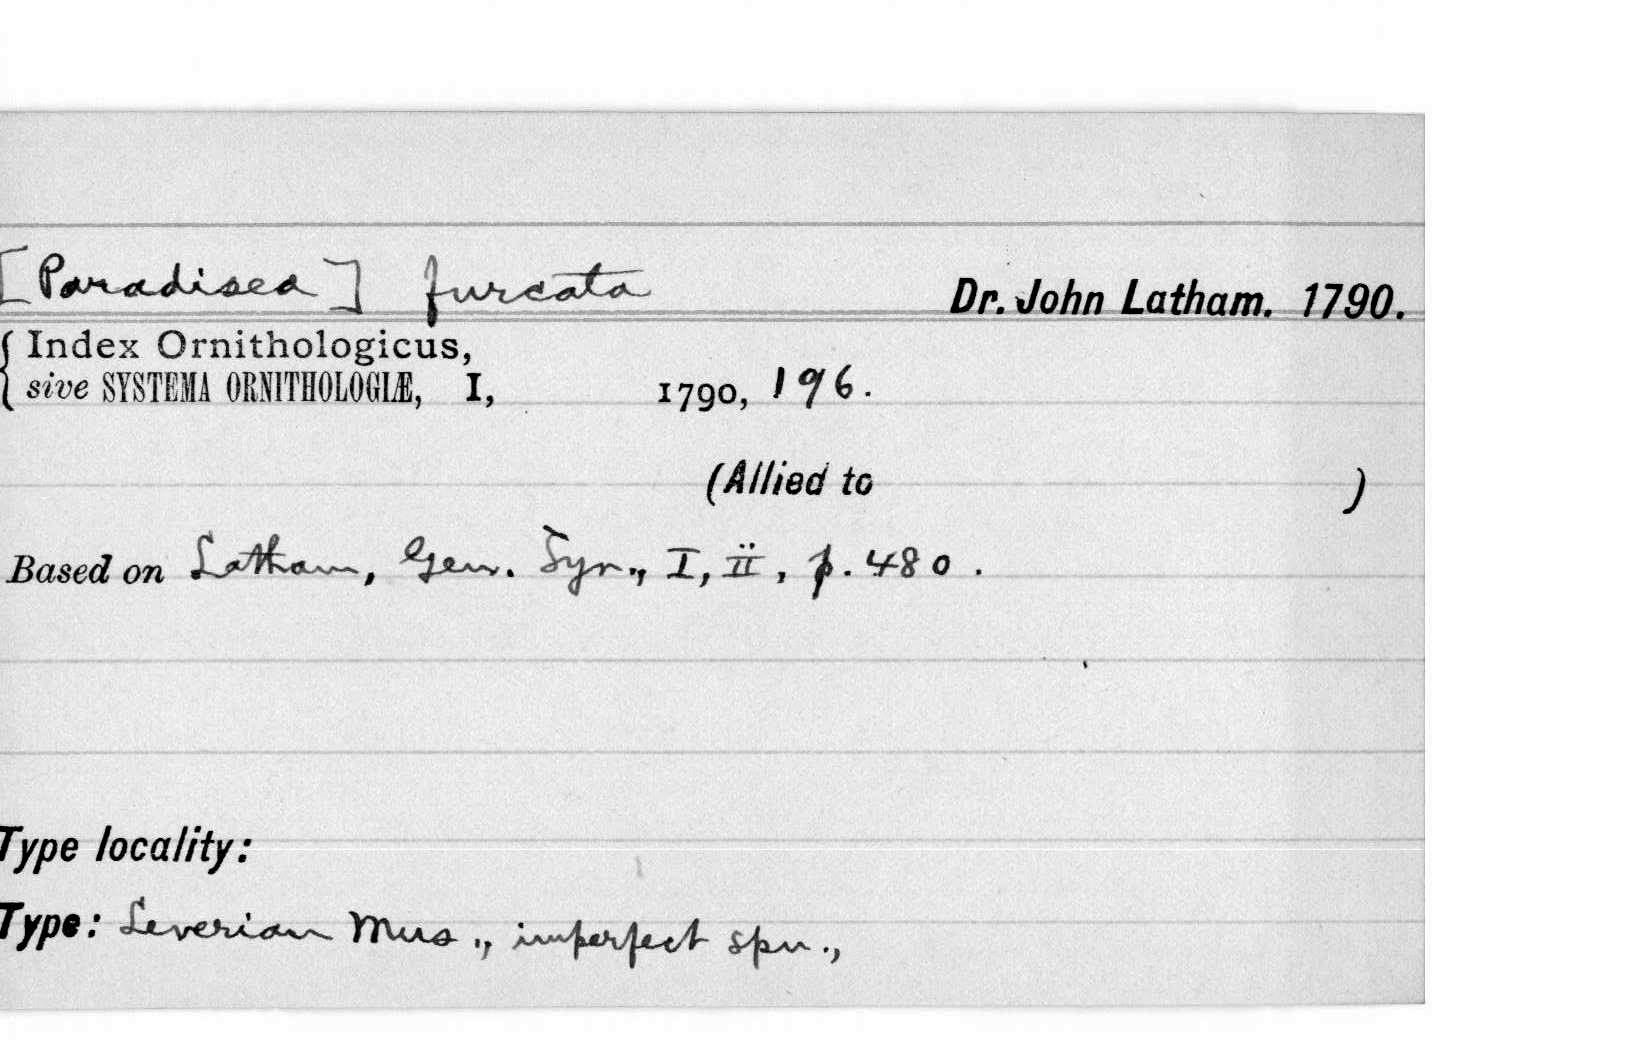 [Paradisea] furcata Dr. John Latham. 1790.
Index Ornithologicus,
sive SYSTEMA ORNITHOLOGIÆ, I, 1790, 196.
(Allied to )
Based on Latham, Gen. Syn., I, ii, p. 480.
Type locality:
Type: Leverian Mus., imperfect spn.,